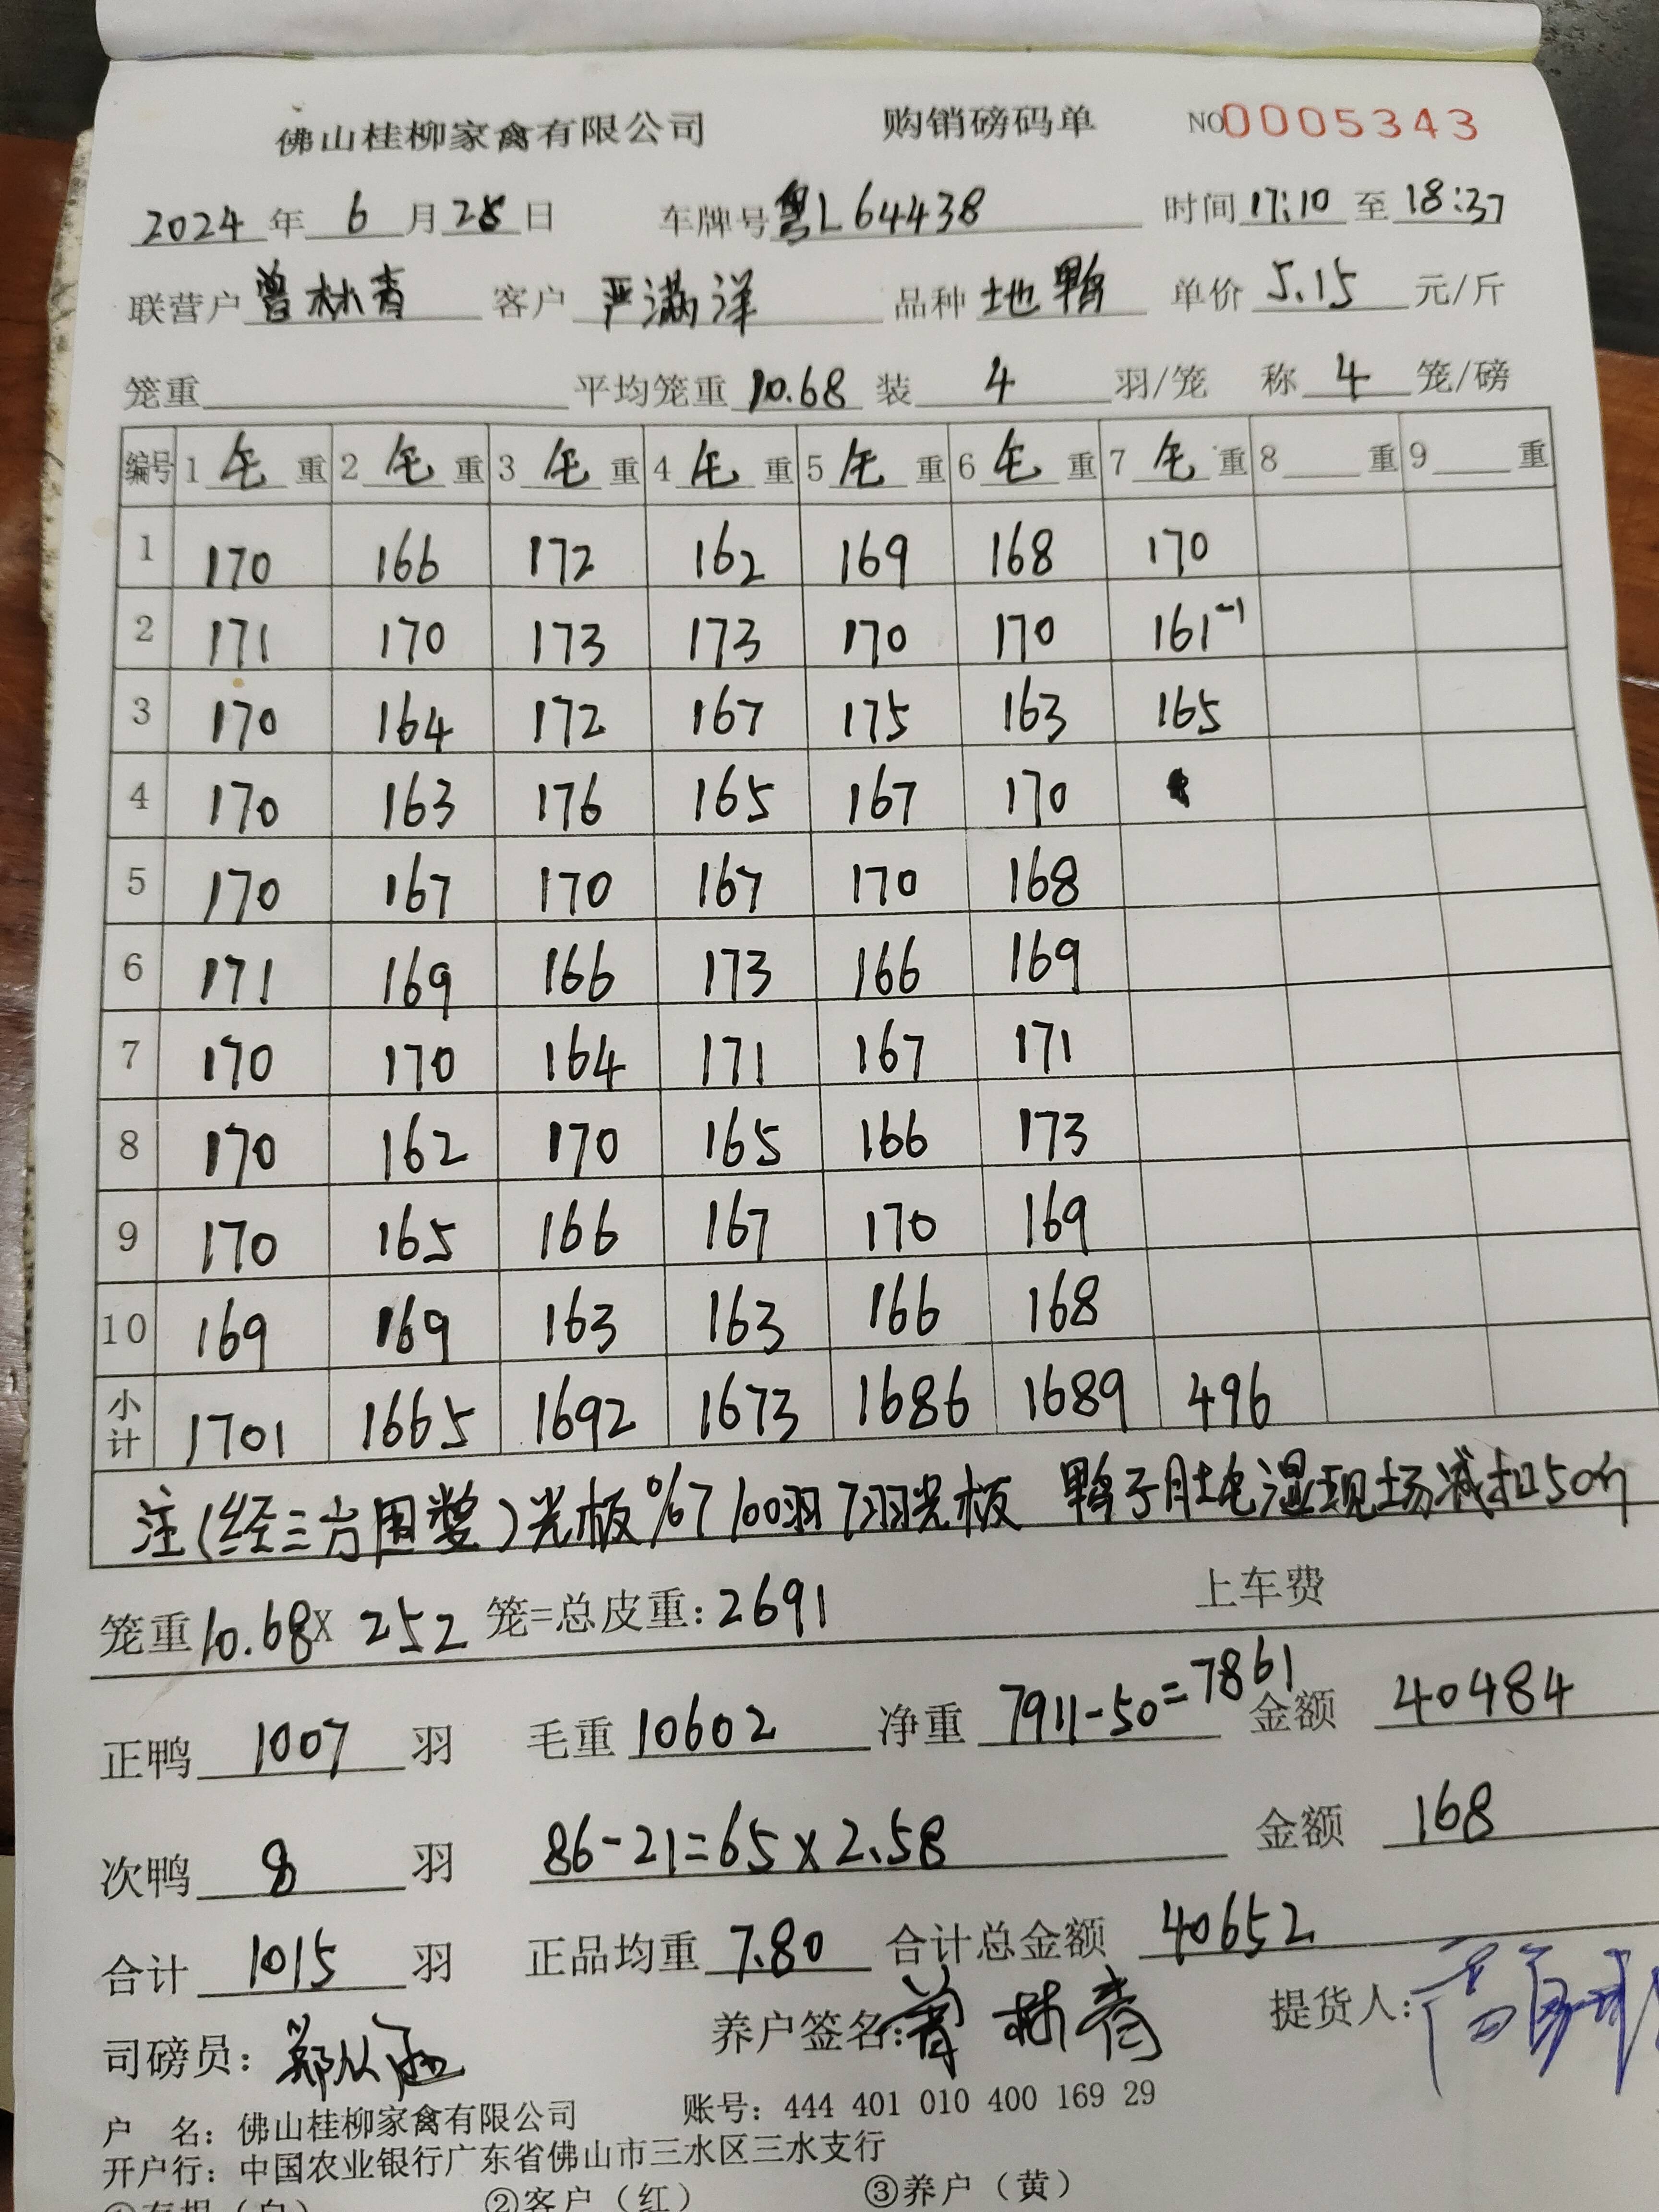 佛山桂柳家禽有限公司 购销磅码单 NO0005343
2024年6月28日 车牌号粤L64438 时间17:10至18:37
联营户曾林青 客户严满洋 品种地鸭 单价5.15元/斤
笼重 平均笼重10.68 装4羽/笼 称4笼/磅
编号 1毛重 2毛重 3毛重 4毛重 5毛重 6毛重 7毛重 8重 9重
1 170 166 172 162 169 168 170
2 171 170 173 173 170 170 161-1
3 170 164 172 167 175 163 165
4 170 163 176 165 167 170
5 170 167 170 167 170 168
6 171 169 166 173 166 169
7 170 170 164 171 167 171
8 170 162 170 165 166 173
9 170 165 166 167 170 169
10 169 169 163 163 166 168
小计 1701 1665 1692 1673 1686 1689 496
注(经三方)光板%7 100羽7羽光板 鸭子湿现场减扣50斤
笼重10.68X252笼=总皮重:2691 上车费
正鸭1007羽 毛重10602 净重7911-50=7861 金额40484
次鸭8羽 86-21=65×2.58 金额168
合计1015羽 正品均重7.80 合计总金额40652
司磅员: 养户签名:曾林青 提货人:
户 名:佛山桂柳家禽有限公司 账号:444 401 010 400 169 29
开户行:中国农业银行广东省佛山市三水区三水支行
②客户(红) ③养户(黄)